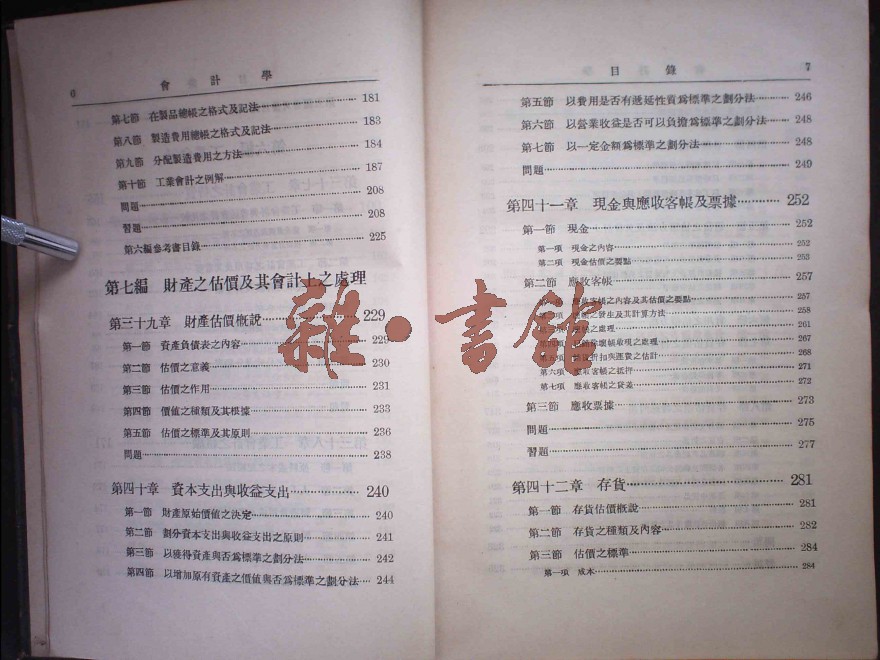 6
會計學
第七節 在製品總帳之格式及記法 181
第八節 製造費用總帳之格式及記法 183
第九節 分配製造費用之方法 184
第十節 工業會計之例解 187
問題 208
習題 208
第六編參考書目錄 225
第七編 財產之估價及其會計上之處理
第三十九章 財產估價概說 229
第一節 資產負債表之內容 229
第二節 估價之意義 230
第三節 估價之作用 231
第四節 價值之種類及其根據 233
第五節 估價之標準及其原則 236
問題 238
第四十章 資本支出與收益支出 240
第一節 財產原始價值之決定 240
第二節 劃分資本支出與收益支出之原則 241
第三節 以獲得資產與否為標準之劃分法 242
第四節 以增加原有資產之價值與否為標準之劃分法 244
目錄
7
第五節 以費用是否有遞延性質為標準之劃分法 246
第六節 以營業收益是否可以負擔為標準之劃分法 248
第七節 以一定金額為標準之劃分法 248
問題 249
第四十一章 現金與應收客帳及票據 252
第一節 現金 252
第一項 現金之內容 252
第二項 現金估價之要點 253
第二節 應收客帳 257
應收客帳之內容及其估價之要點 257
之發生及其計算方法 258
之處理 261
壞帳收現之處理 267
折扣與運費之估計 268
第六項 應收客帳之抵押 271
第七項 應收客帳之貸差 272
第三節 應收票據 273
問題 275
習題 277
第四十二章 存貨 281
第一節 存貨估價概說 281
第二節 存貨之種類及內容 282
第三節 估價之標準 284
第一項 成本 284
雜·書館